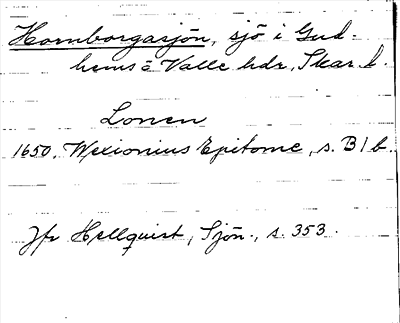 Hornborgasjön, sjö i Gud-
hems o Valle hdr, Skar. l.
Lonen
1650. Wexionius Epitome, s. B1b.
Jfr Hellquist, Sjön., s. 353.